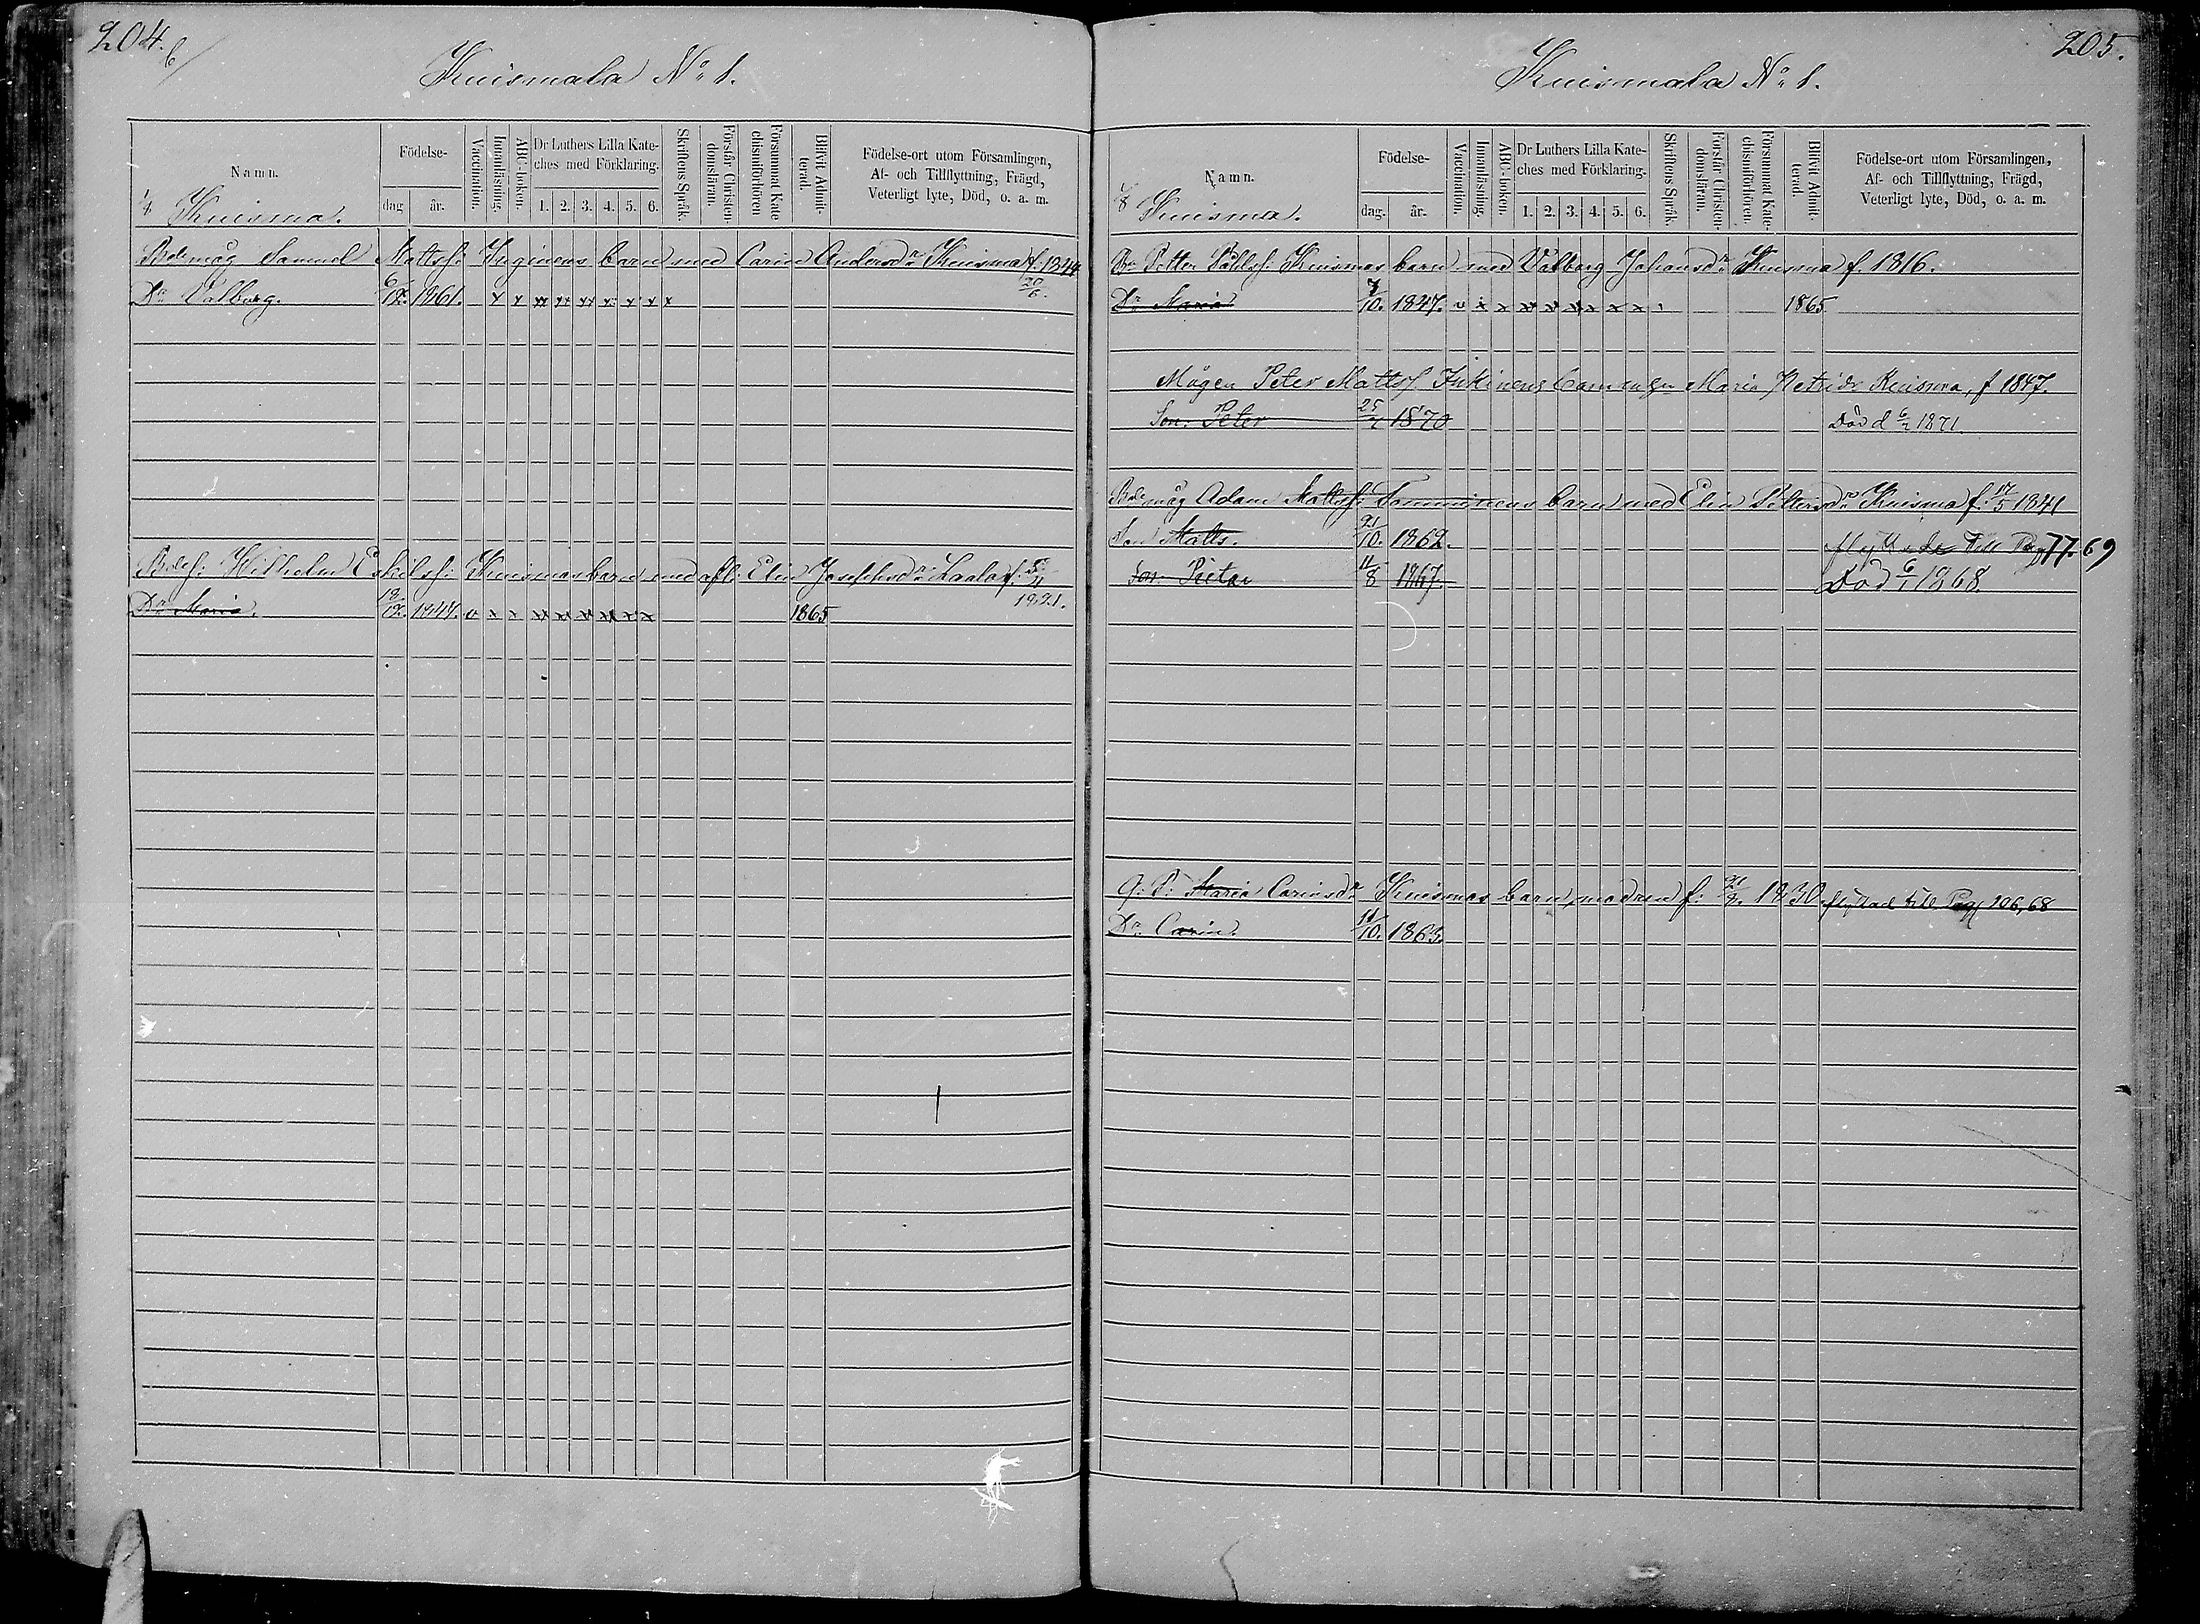 204.
Kuismala No 1.
Namn.
Födelse-
dag
år.
Vaccination.
Innanläsning.
ABC-boken.
Dr Luthers Lilla Kate-
ches med Förklaring.
1. 2. 3. 4. 5. 6.
Skriftens Språk.
Förstår Christen-
domsläran.
Försummat Kate-
chismiförhören
Blifvit Admit-
terad.
Födelse-ort utom Församlingen,
Af- och Tillflyttning, Frägd,
Veterligt lyte, Död, o. a. m.
1/4 Kuisma.
Bdemåg Samuel Mattsf: Inginens barn med Carin Andersdr Kuisma f. 1844 20/6.
Dr Valborg. 6/12. 1861. x x x x x x x x x
Bdef: Wilhelm Eskilsf: Kuismas barn med afl: Elin Josefsdr Laala f: 1821.
Dr Maria. 12. 1847. v x x x x x x x x 1865
205.
Kuismala No 1.
Namn.
Födelse-
dag.
år.
Vaccination.
Innanläsning.
ABC-boken.
Dr Luthers Lilla Kate-
ches med Förklaring.
1. 2. 3. 4. 5. 6.
Skriftens Språk.
Förstår Christen-
domsläran.
Försummat Kate-
chismiförhören.
Blifvit Admit-
terad.
Födelse-ort utom Församlingen,
Af- och Tillflyttning, Frägd,
Veterligt lyte, Död, o. a. m.
1/8 Kuisma.
Bn Petter Påhlsf: Kuismas barn med Valborg Johansdr Kuisma f. 1816.
Dr Maria 7/10. 1847. v x x x x x x x x 1865
Mågen Peter Mattsf Inkinens barn m. Maria Petridr Kuisma, f 1847.
Son: Peter 25/ 1870 Död d 6/2 1871.
Bdemåg Adam Mattsf: Tomminens barn med Elin Pettersdr Kuisma f. 17/5 1841
Son Matts. 21/10. 1862. flyttade till Pag 77-69
Son Pietar 11/8 1867. Död 6/1 1868.
Q: P: Maria Carinsdr Kuismas barn, modren f: 21/9. 1830. flyttad till Pag 206, 68
Dr Carin. 11/10. 1863.